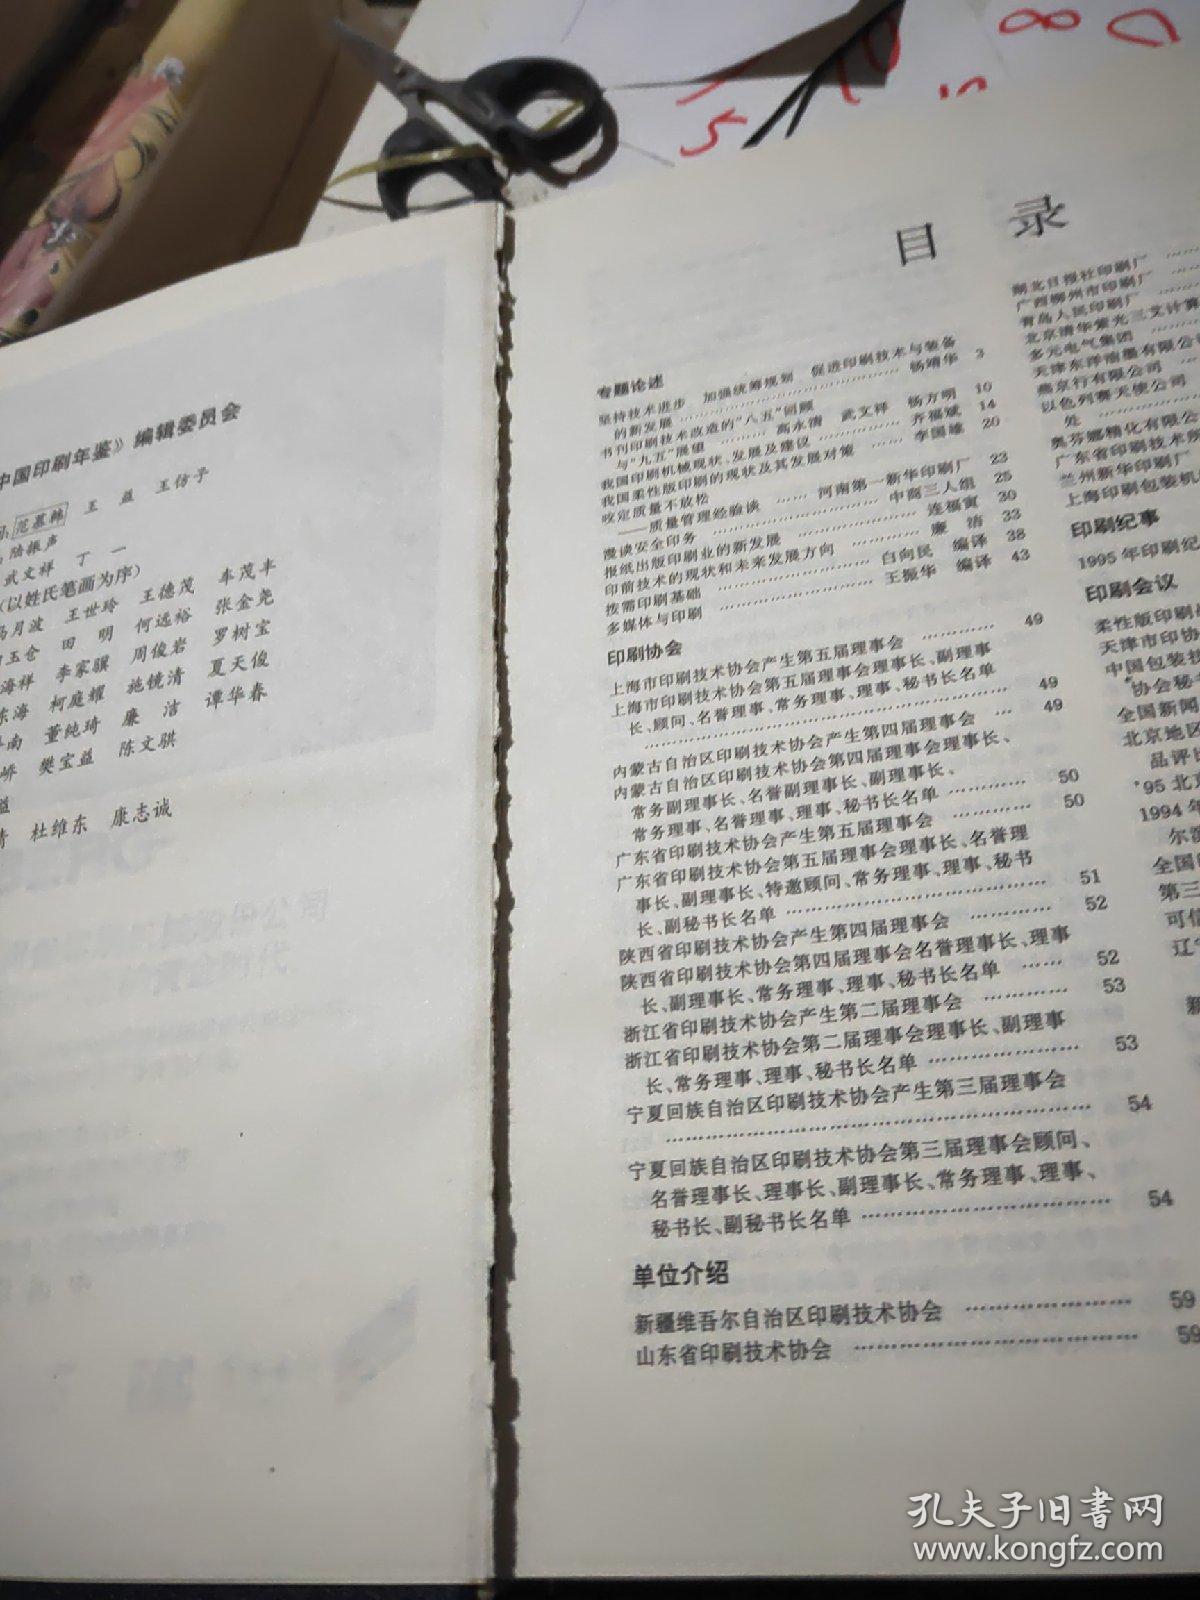 中国印刷年鉴》编辑委员会
范慕韩 王 益 王仿子
陆振声
武文祥 丁 一
(以姓氏笔画为序)
冯月波 王世玲 王德茂 车茂丰
玉仓 田 明 何远裕 张金尧
海祥 李家骥 周俊岩 罗树宝
东海 柯庭耀 施镜清 夏天俊
南 董纯琦 廉 洁 谭华春
娇 樊宝益 陈文骐
益
青 杜维东 康志诚
目 录
专题论述
坚持技术进步 加强统筹规划 促进印刷技术与装备
的新发展 …… 杨靖华 3
书刊印刷技术改造的“八五”回顾
与“九五”展望 …… 高永清 武文祥 杨方明 10
我国印刷机械现状、发展及建议 …… 齐福斌 14
我国柔性版印刷的现状及其发展对策 …… 李国雄 20
咬定质量不放松
——质量管理经验谈 …… 河南第一新华印刷厂 23
漫谈安全印务 …… 中商三人组 25
报纸出版印刷业的新发展 …… 连福寅 30
印前技术的现状和未来发展方向 …… 廉 洁 33
按需印刷基础 …… 白向民 编译 38
多媒体与印刷 …… 王振华 编译 43
印刷协会
上海市印刷技术协会产生第五届理事会 …… 49
上海市印刷技术协会第五届理事会理事长、副理事
长、顾问、名誉理事、常务理事、理事、秘书长名单
…… 49
内蒙古自治区印刷技术协会产生第四届理事会 … 49
内蒙古自治区印刷技术协会第四届理事会理事长、
常务副理事长、名誉副理事长、副理事长、
常务理事、名誉理事、理事、秘书长名单 …… 50
广东省印刷技术协会产生第五届理事会 …… 50
广东省印刷技术协会第五届理事会理事长、名誉理
事长、副理事长、特邀顾问、常务理事、理事、秘书
长、副秘书长名单 …… 51
陕西省印刷技术协会产生第四届理事会 …… 52
陕西省印刷技术协会第四届理事会名誉理事长、理事
长、副理事长、常务理事、理事、秘书长名单 …… 52
浙江省印刷技术协会产生第二届理事会 …… 53
浙江省印刷技术协会第二届理事会理事长、副理事
长、常务理事、理事、秘书长名单 …… 53
宁夏回族自治区印刷技术协会产生第三届理事会
…… 54
宁夏回族自治区印刷技术协会第三届理事会顾问、
名誉理事长、理事长、副理事长、常务理事、理事、
秘书长、副秘书长名单 …… 54
单位介绍
新疆维吾尔自治区印刷技术协会 …… 59
山东省印刷技术协会 …… 59
湖北日报社印刷厂 ……
广西柳州市印刷厂 ……
青岛人民印刷厂 ……
北京清华紫光三文计算
多元电气集团 ……
天津东洋油墨有限公司
燕京行有限公司 ……
以色列赛天使公司
处 ……
奥芬娜精化有限公
广东省印刷技术所
兰州新华印刷厂
上海印刷包装机
印刷纪事
1995年印刷纪
印刷会议
柔性版印刷
天津市印协
中国包装技
协会秘书
全国新闻
北京地区
品评比
'95北京
1994年
尔
全国
第三
可信
辽宁
新
孔夫子旧书网
www.kongfz.com